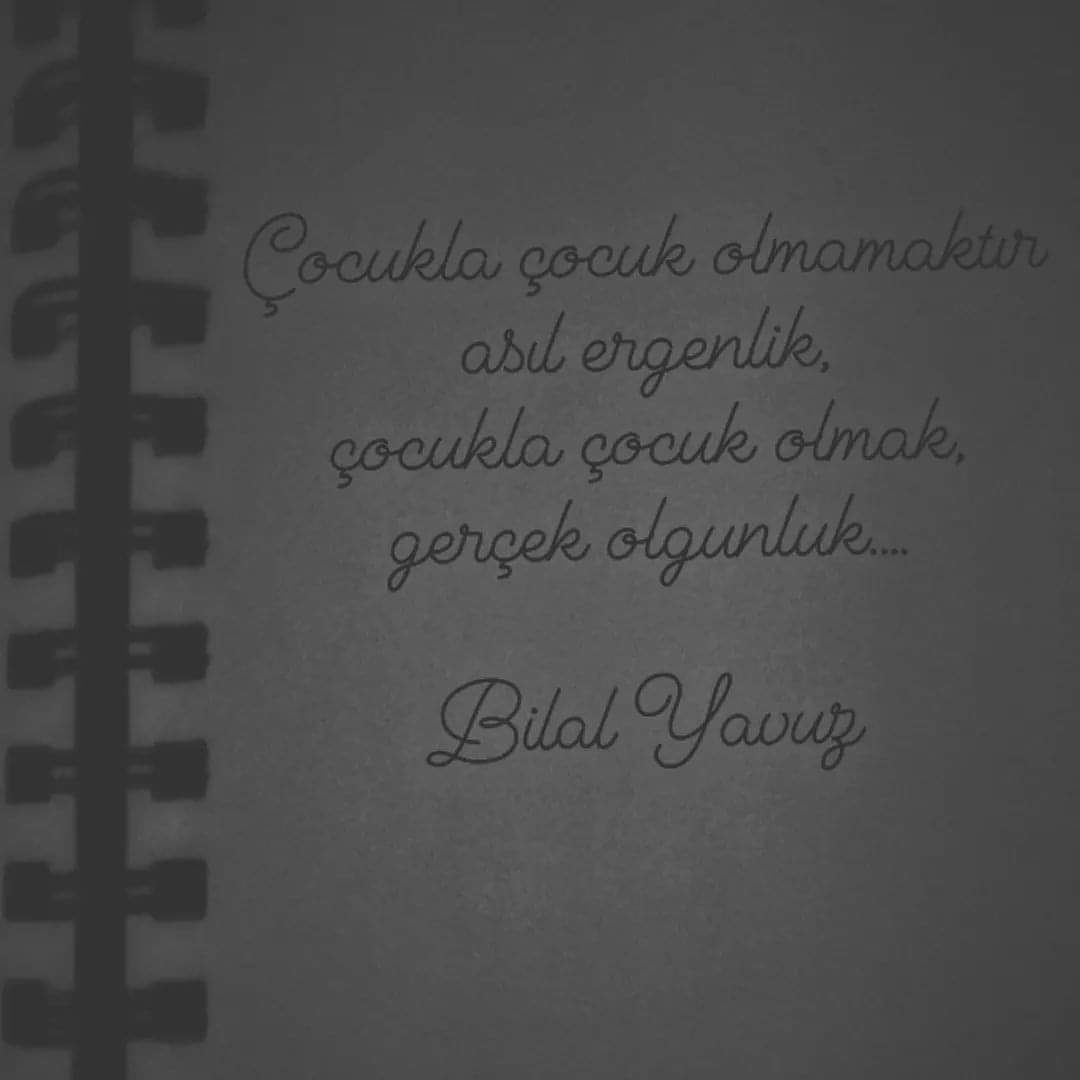 Çocukla çocuk olmamaktır
asıl ergenlik,
çocukla çocuk olmak,
gerçek olgunluk....
Bilal Yavuz